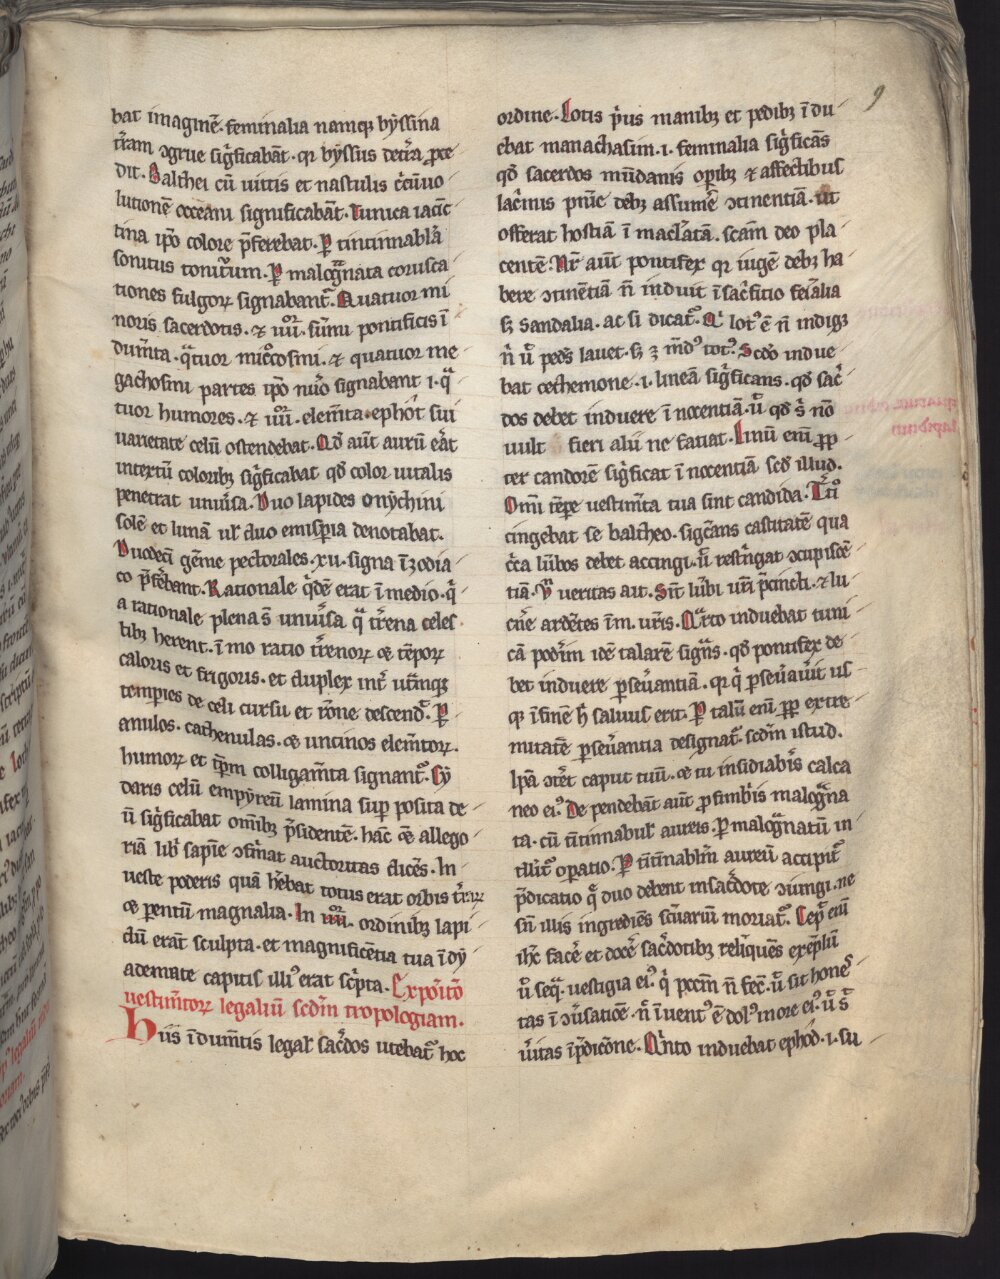 bat imaginē. feminalia namq; byssina
t̄ram ɔgrue sig̅ficabāt. qr byssus de t̄ra ꝓce
dit. Balthei cū uittis et nastulis c̄cūuo
lutionē occeani significabāt. Tunica iacīc
tina ip̄o colore p̄ferebat. ꝑ tintinnabl̓a
sonitus tonit̄uum. ꝑ malog̅nata corusca
tiones fulgoꝝ signabant̄. Quatuor mi
noris sacerdotis. ⁊ uiii. sūmi pontificis ī
dum̄ta. q̄tuor mic̓ocosmi. ⁊ quatuor me
gachosmi partes ip̄o nūo signabant .i. q̄
tuor humores. ⁊ iiii. elem̄ta. ephōt sui
uarietate celū ostendebat. Qd̓ aūt aurū eāt
intextū colorib; sig̅ficabat qd̓ color uitalis
penetrat uniūsa. Duo lapides onychini
solē et lunā ul̓ duo emispia denotabat.
Duodecī gēme pectorales .xii. signa ī zodia
co p̄febant. Rationale q̄dē erat ī medio. q̄
a rationale plena s̄ uniūsa q̄ t̄rena celes
tib; herent. īmo ratio t̄renoꝝ ⁊ tēpoꝝ
caloris et frigoris. et duplex int̄ ut̄mq;
temperies de celi cursu et rōne descend̄. ꝑ
anulos. cathenulas. ⁊ uncinos elem̄toꝝ.
humoꝝ et tp̄m colligam̄ta signant̄. Cy
daris celū empyreū lamina sup posita de
ū sig̅ficabat om̄ib; p̄sidentē. hāc ⁊ allego
riā lib̄ sapīe ɔfirmat auctoritas dicēs. In
ueste poderis quā h̄ebat totus erat orbis t̄raꝝ
⁊ parentū magnalia. In iiii. ordinib; lapi
dū erāt sculpta. et magnificētia tua ī dy
ademate capitis illi᾿ erat sc̄pta. Expōitō
uestim̄toꝝ legaliū scdm̄ tropologiam.
Hiis īdum̄tis legal̓ sac̄dos utebat̄ hoc
ordine. Lotis p̄us manib; et pedib; īdu
ebat manachasim .i. feminalia sig̅ficās
qd̓ sacerdos mūdanis oꝑib; ⁊ affectibus
lac̄mis pn̄īe deb; assumē ɔtinentiā. ut
offerat hostiā īmac̄latā. sc̄am deo pla
centē. Nr̄ aūt pontifex qr iugē deb; ha
bere ɔtinētiā n̄ induit ī sac̄fitio feīalia
s; sandalia. ac si dicat̄. Qi lot᾿ ē n̄ indig;
n̄ ū ped̄s lauet. s; ē mūd᾿ tot᾿. Scd̓o indue
bat cethemone .i. lineā sig̅ficans. qd̓ sac̄
dos debet induere īnocentiā. ū qd̓ s̄ nō
uult fieri alii ne faciat. Linū eni ꝓp
ter candorē sig̅ficat īnocentiā scd̓ illud.
Omi tēpe uestim̄ta tua sint candida. T̄tio
cingebat se baltheo. sig̅cans castitatē qua
c̄ca lūbos debet accingi. ū rest̄ngat ɔcupiscē
tiā. Vn̄ ueritas ait. Sīt lūbi ur̄i p̄cincti. ⁊ lu
c̄ne ardētes ī m. ur̄is. Q̄rto induebat tuni
cā poder̄im idē talarē sig̅ns. qd̓ pontifex de
bet induere ꝑseūantiā. qr q̄ ꝑseūauīt us
q; ī finē h̄ saluus erit. ꝑ talū enī ꝓp extre
mitatē ꝑseūantia designat̄. scdm̄ istud.
Ip̄a ɔt̄et caput tuū. ⁊ tu insidiab̄is calca
neo ei᾿. De pendebāt aūt ꝓ fimb̄is malog̅na
ta. cū tītinnabul̓ aureis. ꝑ malog̅natū in
tll̓it̄ oꝑatio. ꝑ tītinnabl̓m aureū accipit̄
p̄dicatio q̄ duo debent in sac̄dote ɔiungi. ne
sn̄ illis ingrediēs sc̄uariū moriat̄. Cepit̄ enī
ih̄c fac̄e et doc̄e sac̄dotib; reliquēs exēplū
ū seq̄. uestigia ei᾿. q̄ pcc̄m n̄ fec̄. ū sit hones
tas ī ɔūsatiōe. n̄ īuent᾿ ē dol᾿ in ore ei᾿. ū s̄
ūitas ī p̄dicōne. Q̄nto induebat ephod .i. su
9